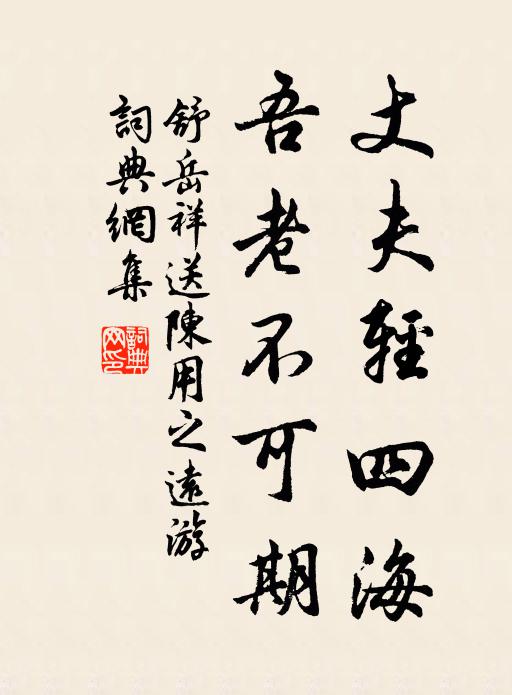 丈夫輕四海
吾老不可期
舒岳祥送陳用之遠游
詞典網集
詞典网印